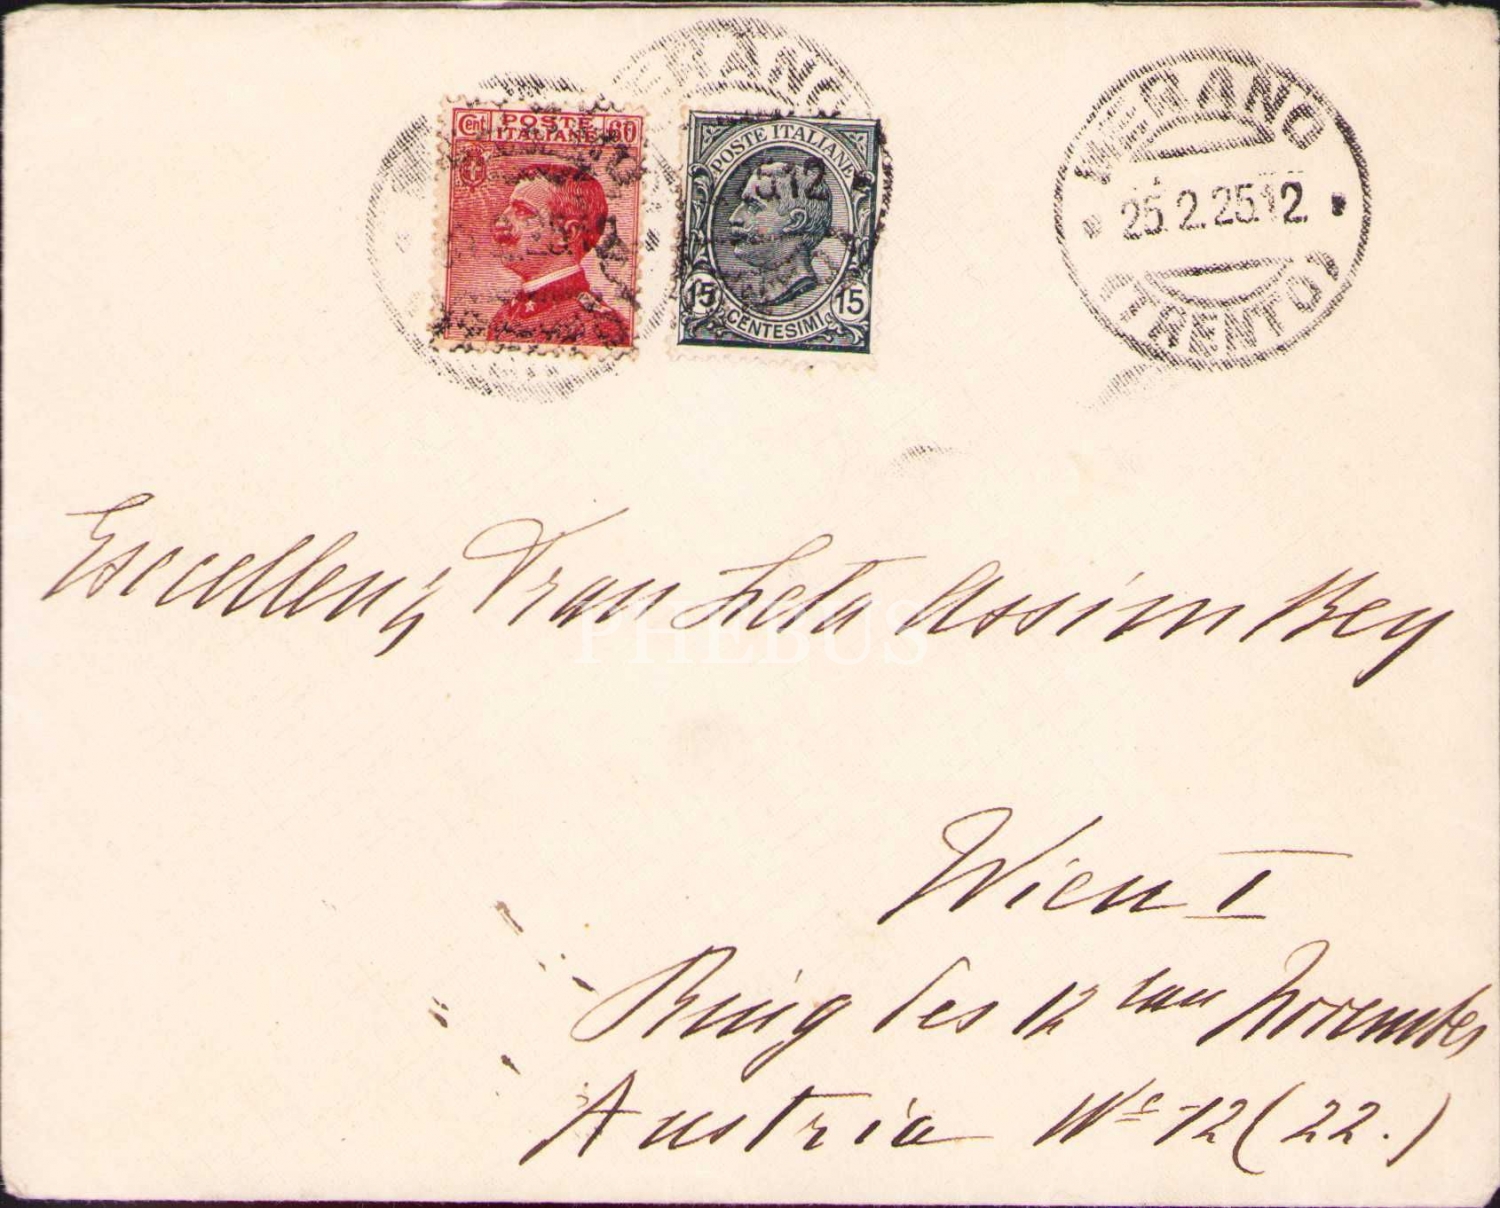 Cent POSTE ITALIANE 60
POSTE ITALIANE
15 CENTESIMI 15
ERANO
25 12
MERANO
25.2.25.12
(TRENTO)
Escellenz Frau Leta Assim Bey
PHEBUS
Wien I
Ring des 12 ten November
Austria No 12 (22.)